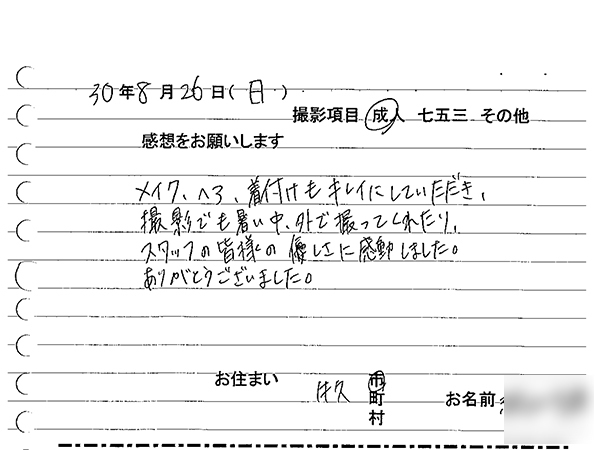 30年8月26日(日)
撮影項目 成人 七五三 その他
感想をお願いします
メイク、ヘア、着付けもキレイにしていただき、
撮影でも暑い中、外で撮ってくれたり、
スタッフの皆様の優しさに感動しました。
ありがとうございました。
お住まい 牛久 市町村 お名前